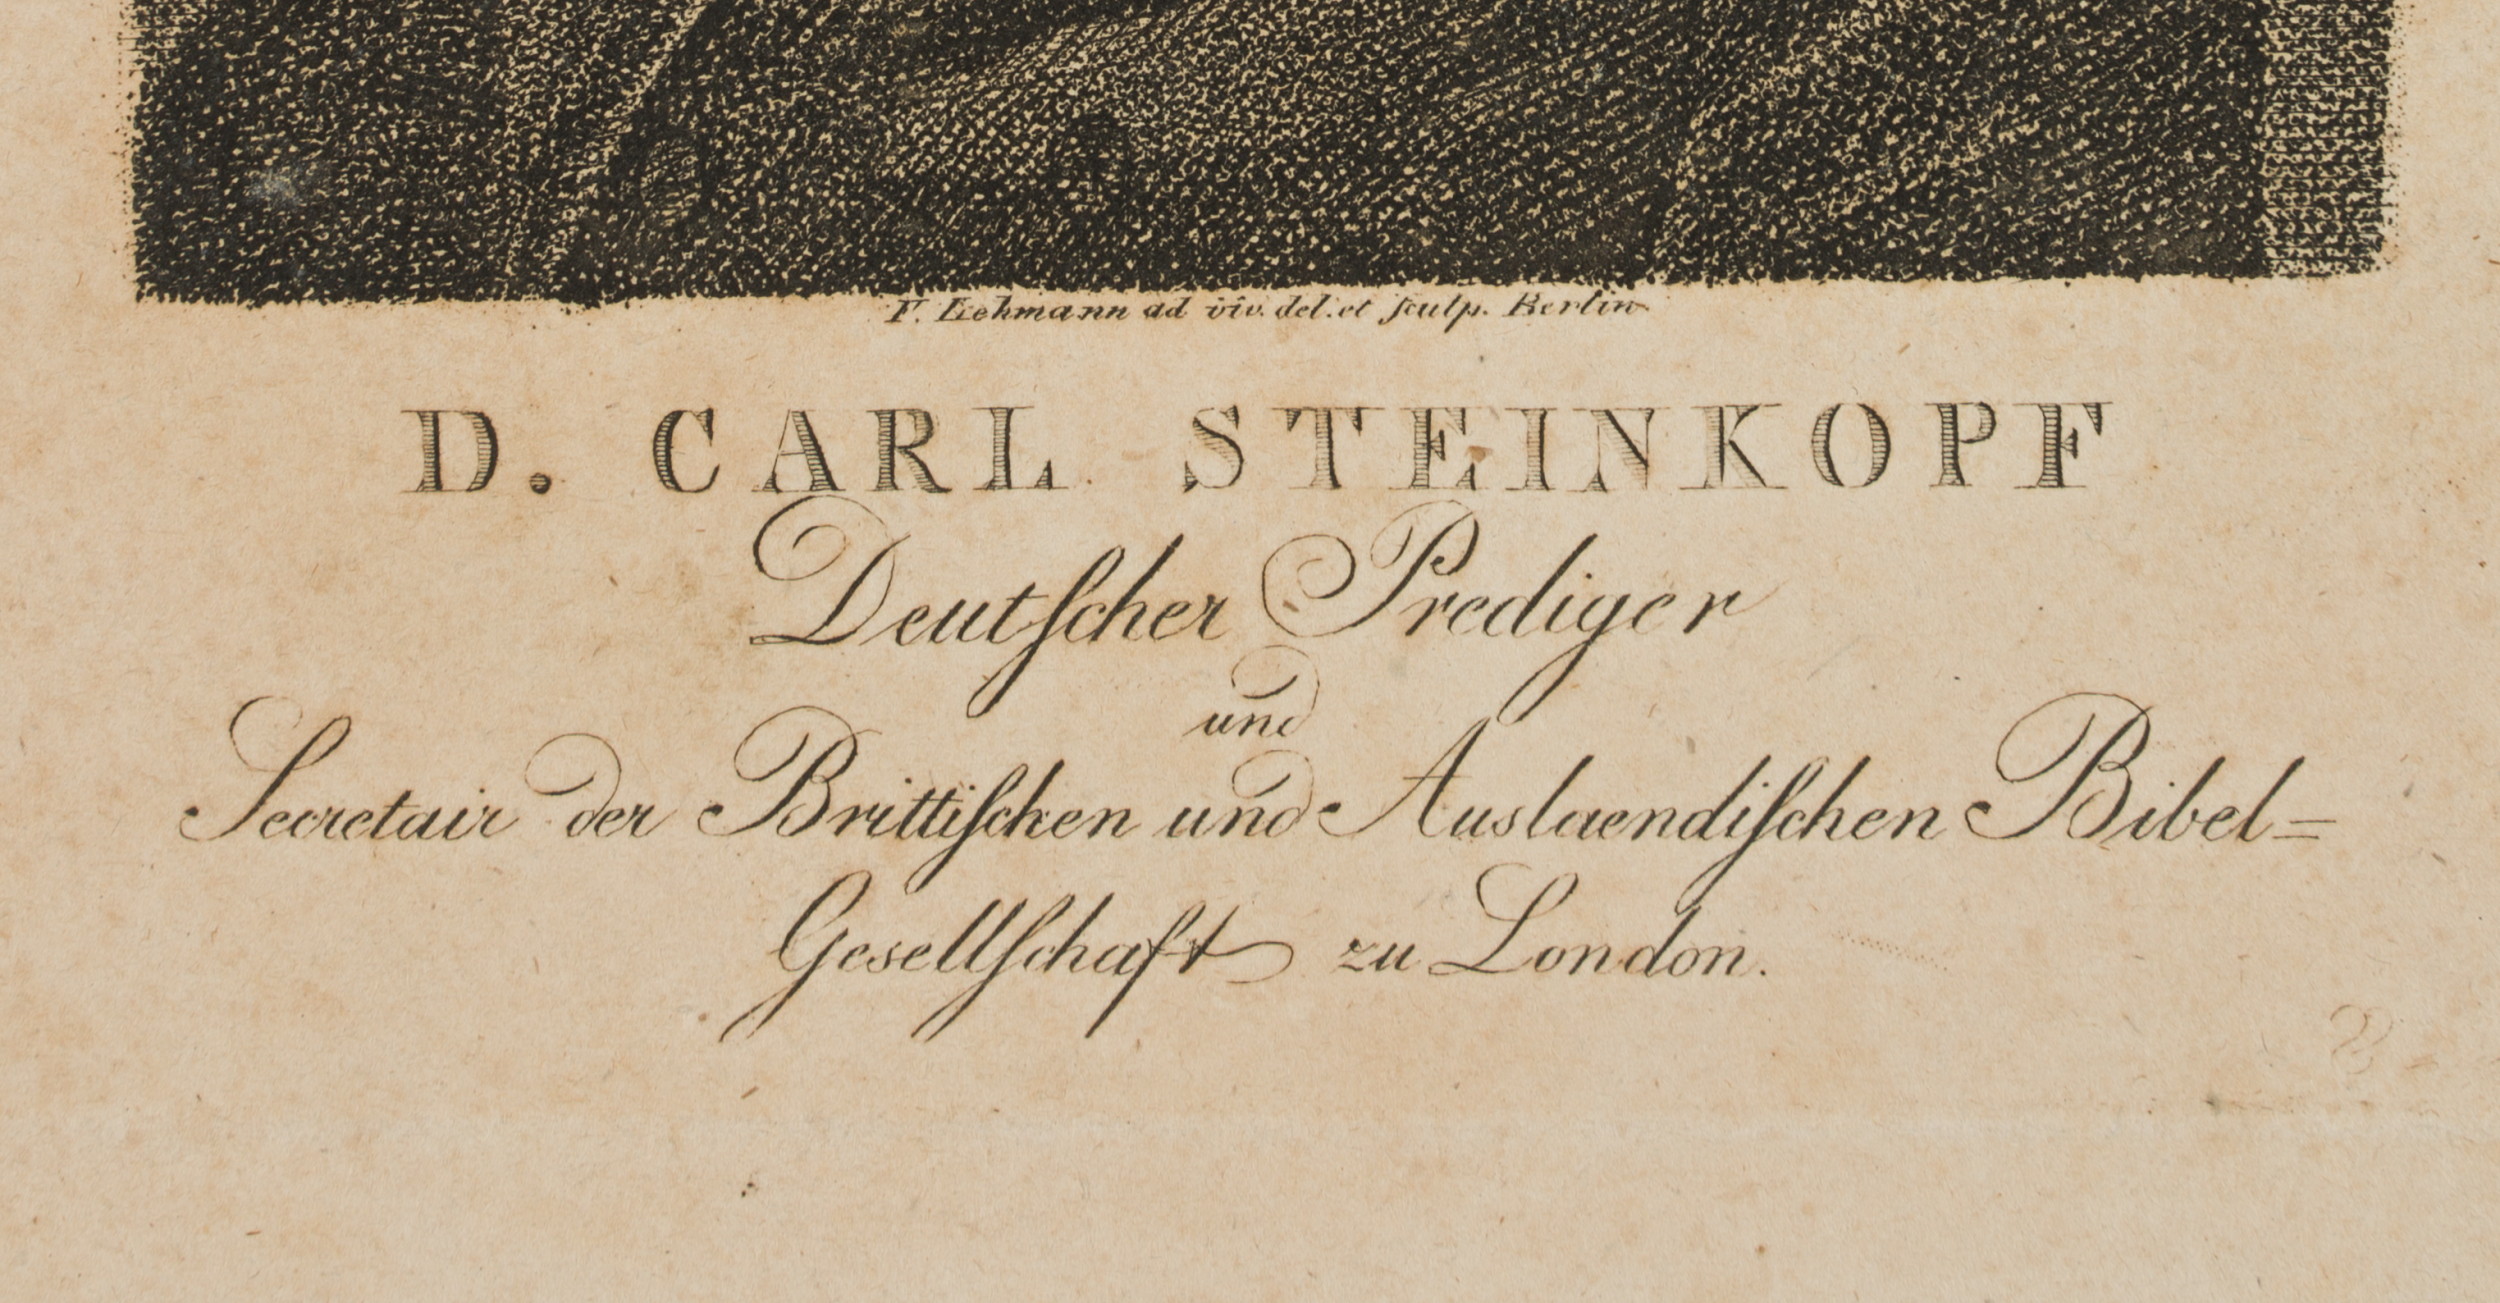 F. Lehmann ad viv. del. et ſculp. Berlin
D. CARL STEINKOPF
Deutſcher Prediger
und
Secretair der Brittiſchen und Auslaendiſchen Bibel=
Gesellſchaft zu London.